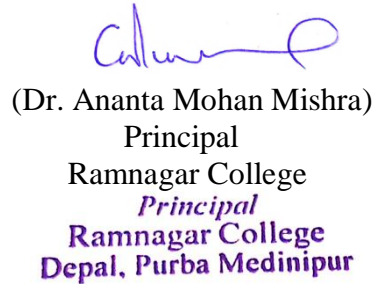 (Dr. Ananta Mohan Mishra)
Principal
Ramnagar College
Principal
Ramnagar College
Depal, Purba Medinipur